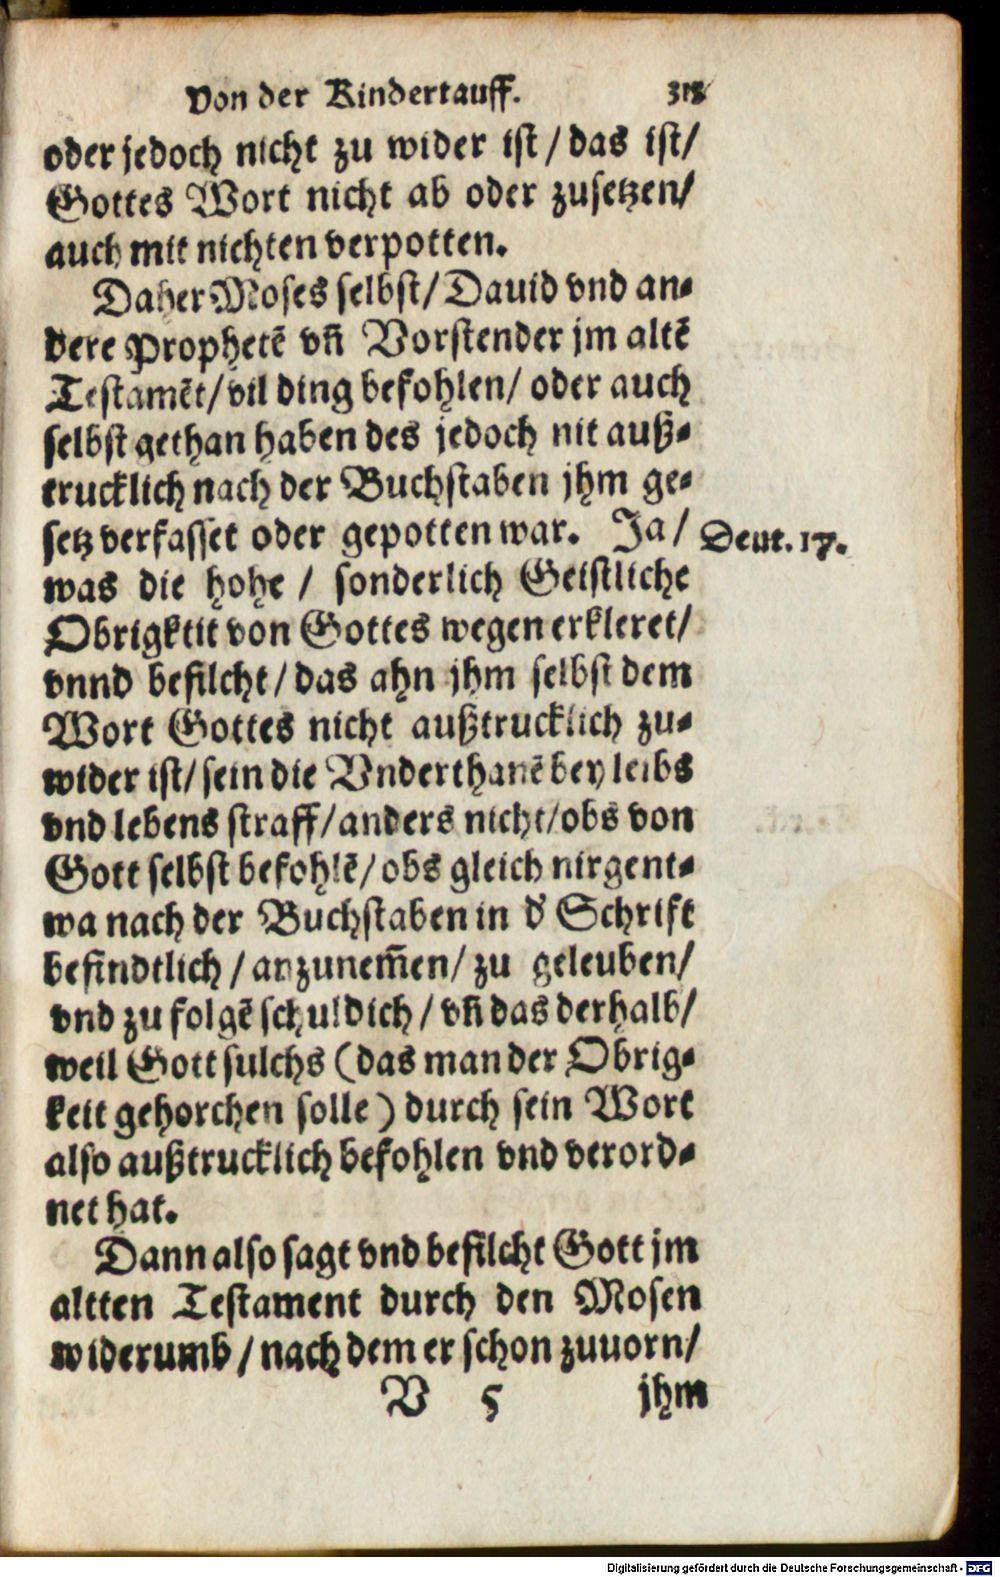 Von der Kindertauff.
oder jedoch nicht zu wider ist / das ist /
Gottes Wort nicht ab oder zusetzen /
auch mit nichten verpotten.
Daher Moses selbst / Dauid vnd an-
dere Prophetẽ vñ Vorstender jm altẽ
Testamẽt / vil ding befohlen / oder auch
selbst gethan haben des jedoch nit auß-
trucklich nach der Buchstaben jhm ge-
setz verfasset oder gepotten war. Ja /
Deut. 17.
was die hohe / sonderlich Geistliche
Obrigktit von Gottes wegen erkleret /
vnnd befilcht / das ahn jhm selbst dem
Wort Gottes nicht außtrucklich zu-
wider ist / sein die Vnderthanẽ bey leibs
vnd lebens straff / anders nicht / obs von
Gott selbst befohlẽ / obs gleich nirgent-
wa nach der Buchstaben in d' Schrift
befindtlich / anzunem̃en / zu geleuben /
vnd zu folgẽ schuldich / vñ das derhalb /
weil Gott sulchs (das man der Obrig-
keit gehorchen solle) durch sein Wort
also außtrucklich befohlen vnd verord-
net hat.
Dann also sagt vnd befilcht Gott jm
altten Testament durch den Mosen
widerumb / nach dem er schon zuuorn /
V 5 jhm
Digitalisierung gefördert durch die Deutsche Forschungsgemeinschaft - DFG